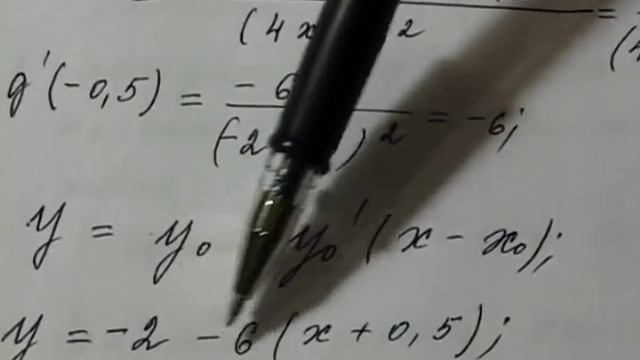 (4x 2 = (4
g'(-0,5) = -6 / (-2 )² = -6;
y = y₀ y₀'(x - x₀);
y = -2 - 6(x + 0,5);